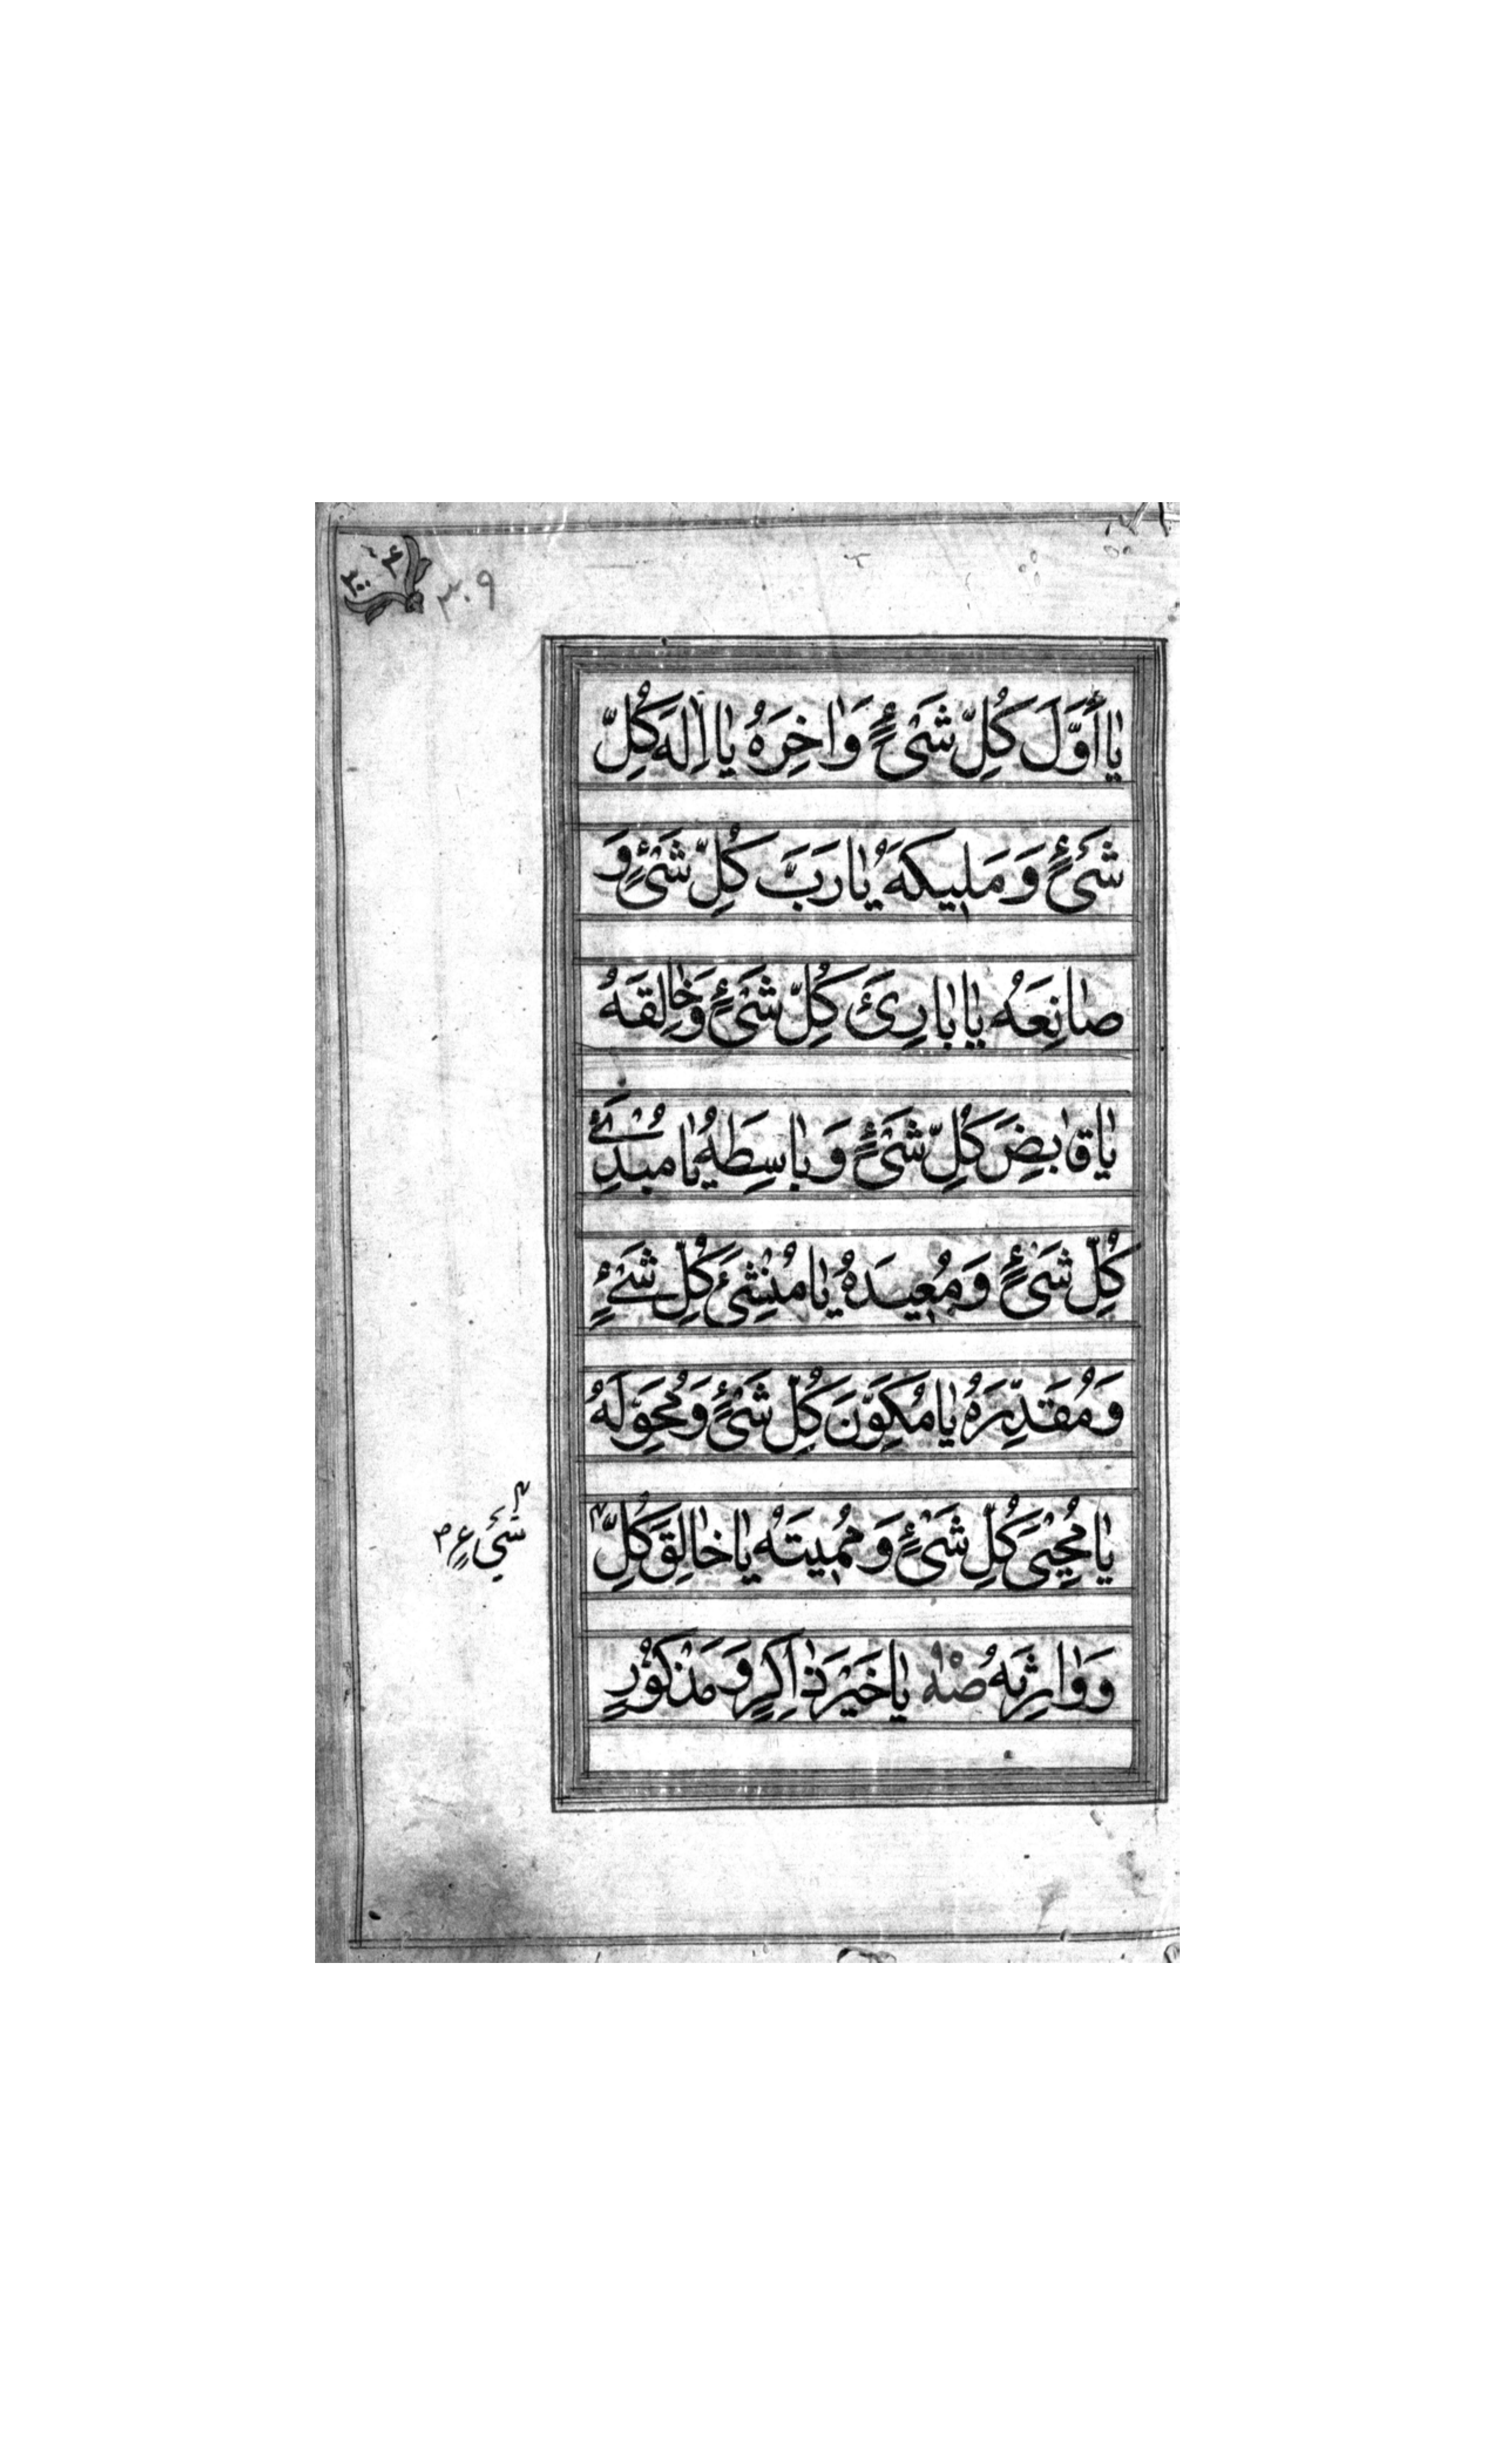 ٣٠٠۴
٣٠٩
يٰا أَوَّلَ كُلِّ شَىْءٍ وَاٰخِرَهُ يٰا اِلٰهَ كُلِّ
شَىْءٍ وَمَلِيكَهُ يٰا رَبَّ كُلِّ شَىْءٍ وَ
صٰانِعَهُ يٰا بٰارِئَ كُلِّ شَىْءٍ وَخٰالِقَهُ
يٰا قٰابِضَ كُلِّ شَىْءٍ وَبٰاسِطَهُ يٰا مُبْدِئَ
كُلِّ شَىْءٍ وَمُعِيدَهُ يٰا مُنْشِئَ كُلِّ شَىْءٍ
وَمُقَدِّرَهُ يٰا مُكَوِّنَ كُلِّ شَىْءٍ وَمُحَوِّلَهُ
يٰا مُحْيِىَ كُلِّ شَىْءٍ وَمُمِيتَهُ يٰا خٰالِقَ كُلِّ
شَيْءٍ
وَوٰارِثَهُ صْهْ يٰا خَيْرَ ذٰاكِرٍ وَمَذْكُوْرٍ